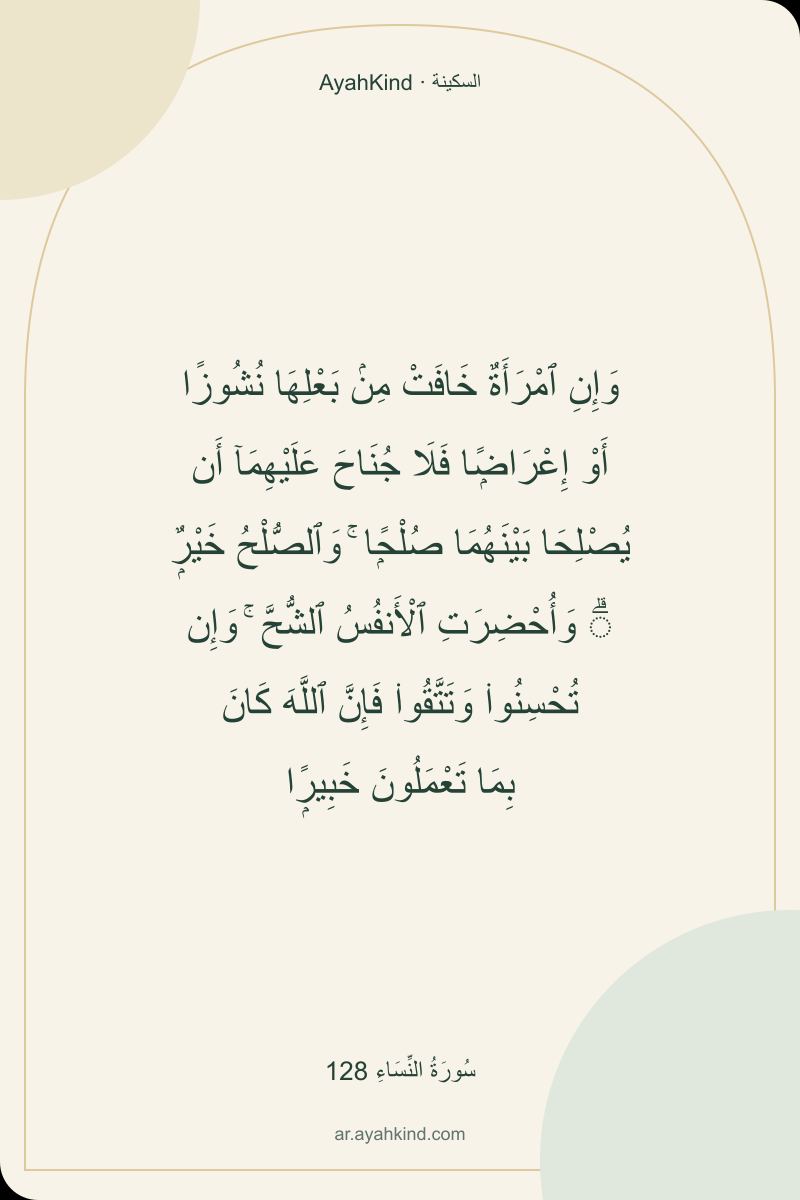 AyahKind · السكينة
وَإِنِ ٱمْرَأَةٌ خَافَتْ مِنۢ بَعْلِهَا نُشُوزًا
أَوْ إِعْرَاضًۭا فَلَا جُنَاحَ عَلَيْهِمَآ أَن
يُصْلِحَا بَيْنَهُمَا صُلْحًۭا ۚ وَٱلصُّلْحُ خَيْرٌۭ
ۗ وَأُحْضِرَتِ ٱلْأَنفُسُ ٱلشُّحَّ ۚ وَإِن
تُحْسِنُوا۟ وَتَتَّقُوا۟ فَإِنَّ ٱللَّهَ كَانَ
بِمَا تَعْمَلُونَ خَبِيرًۭا
سُورَةُ النِّسَاءِ 128
ar.ayahkind.com